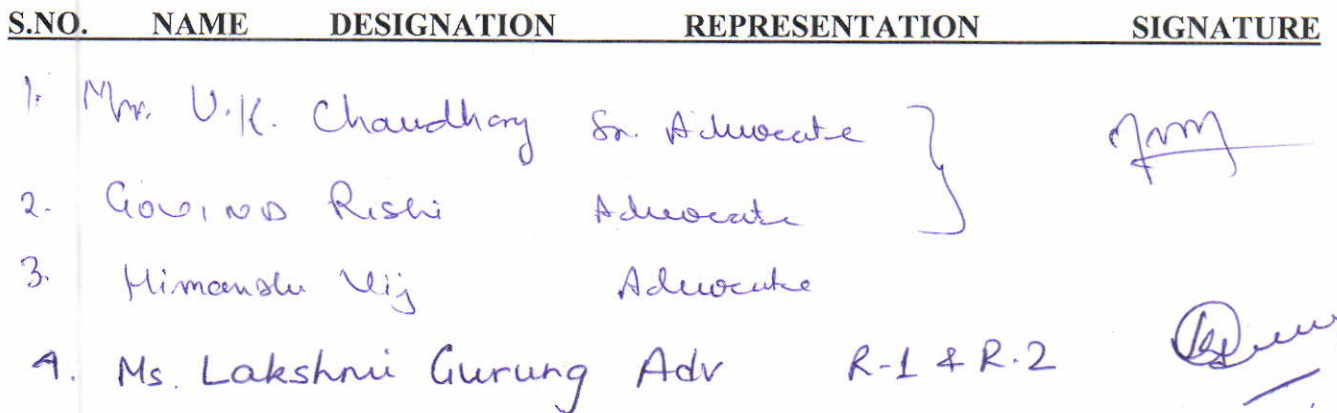 S.NO. NAME DESIGNATION REPRESENTATION SIGNATURE
1. Mr. U.K. Chaudhary Sr. Advocate
2. Govind Rishi Advocate
3. Himanshu Vij Advocate
4. Ms. Lakshmi Gurung Adv R-1 & R-2